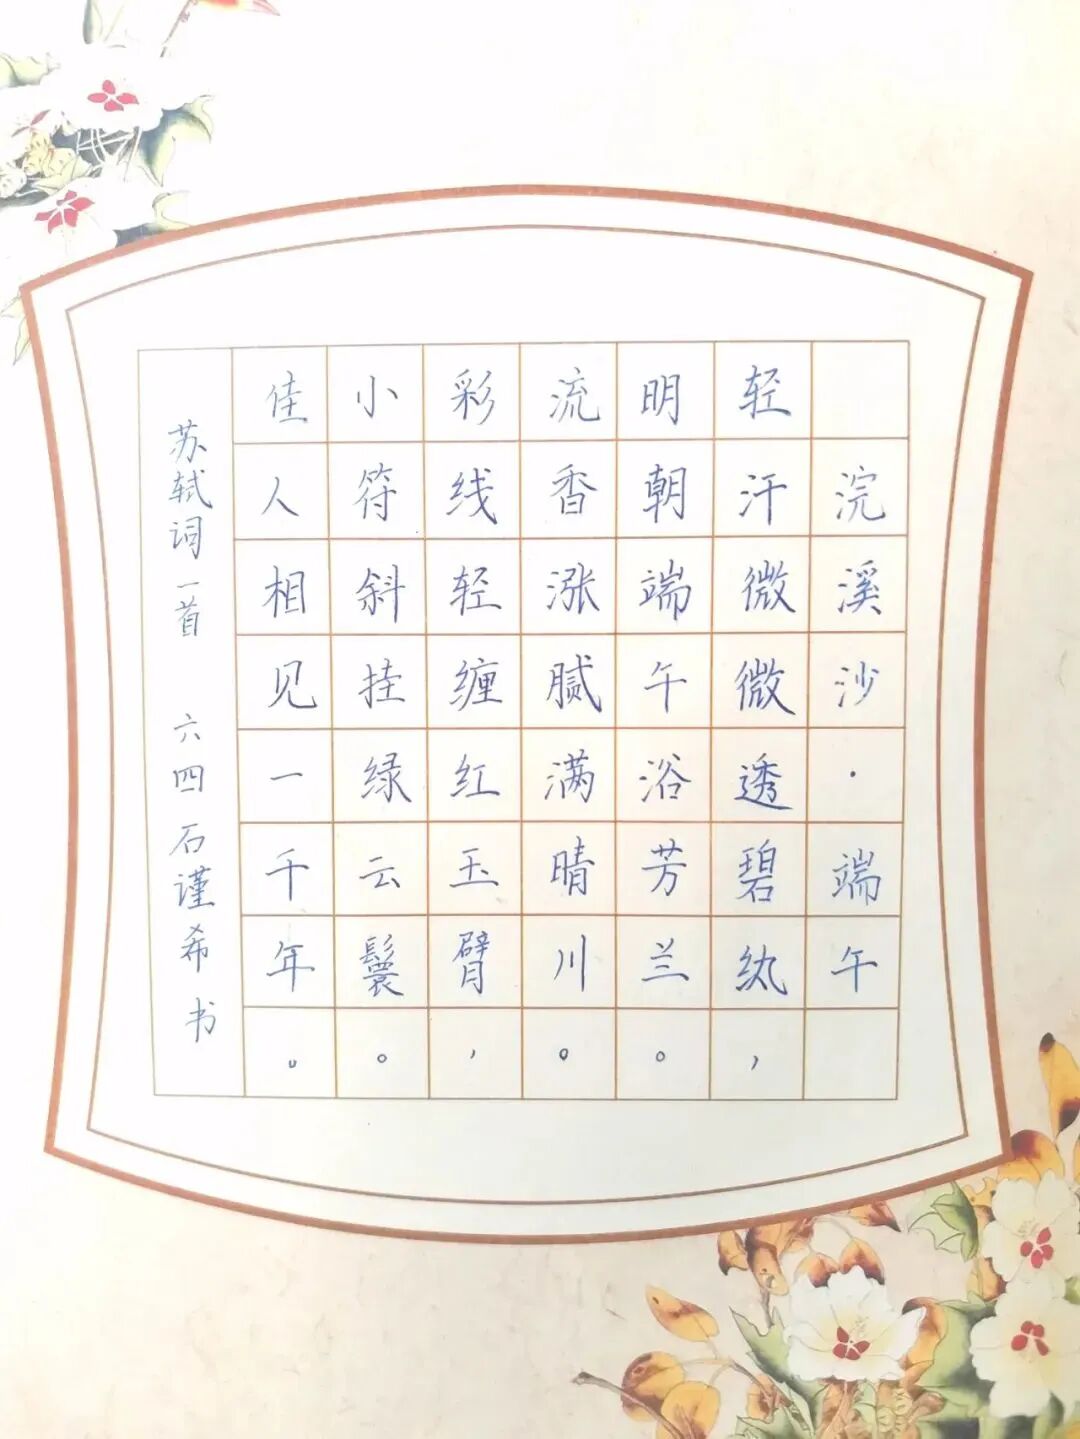 浣溪沙·端午
轻汗微微透碧纨，
明朝端午浴芳兰。
流香涨腻满晴川。
彩线轻缠红玉臂，
小符斜挂绿云鬟。
佳人相见一千年。
苏轼词一首 六四 石谨希 书